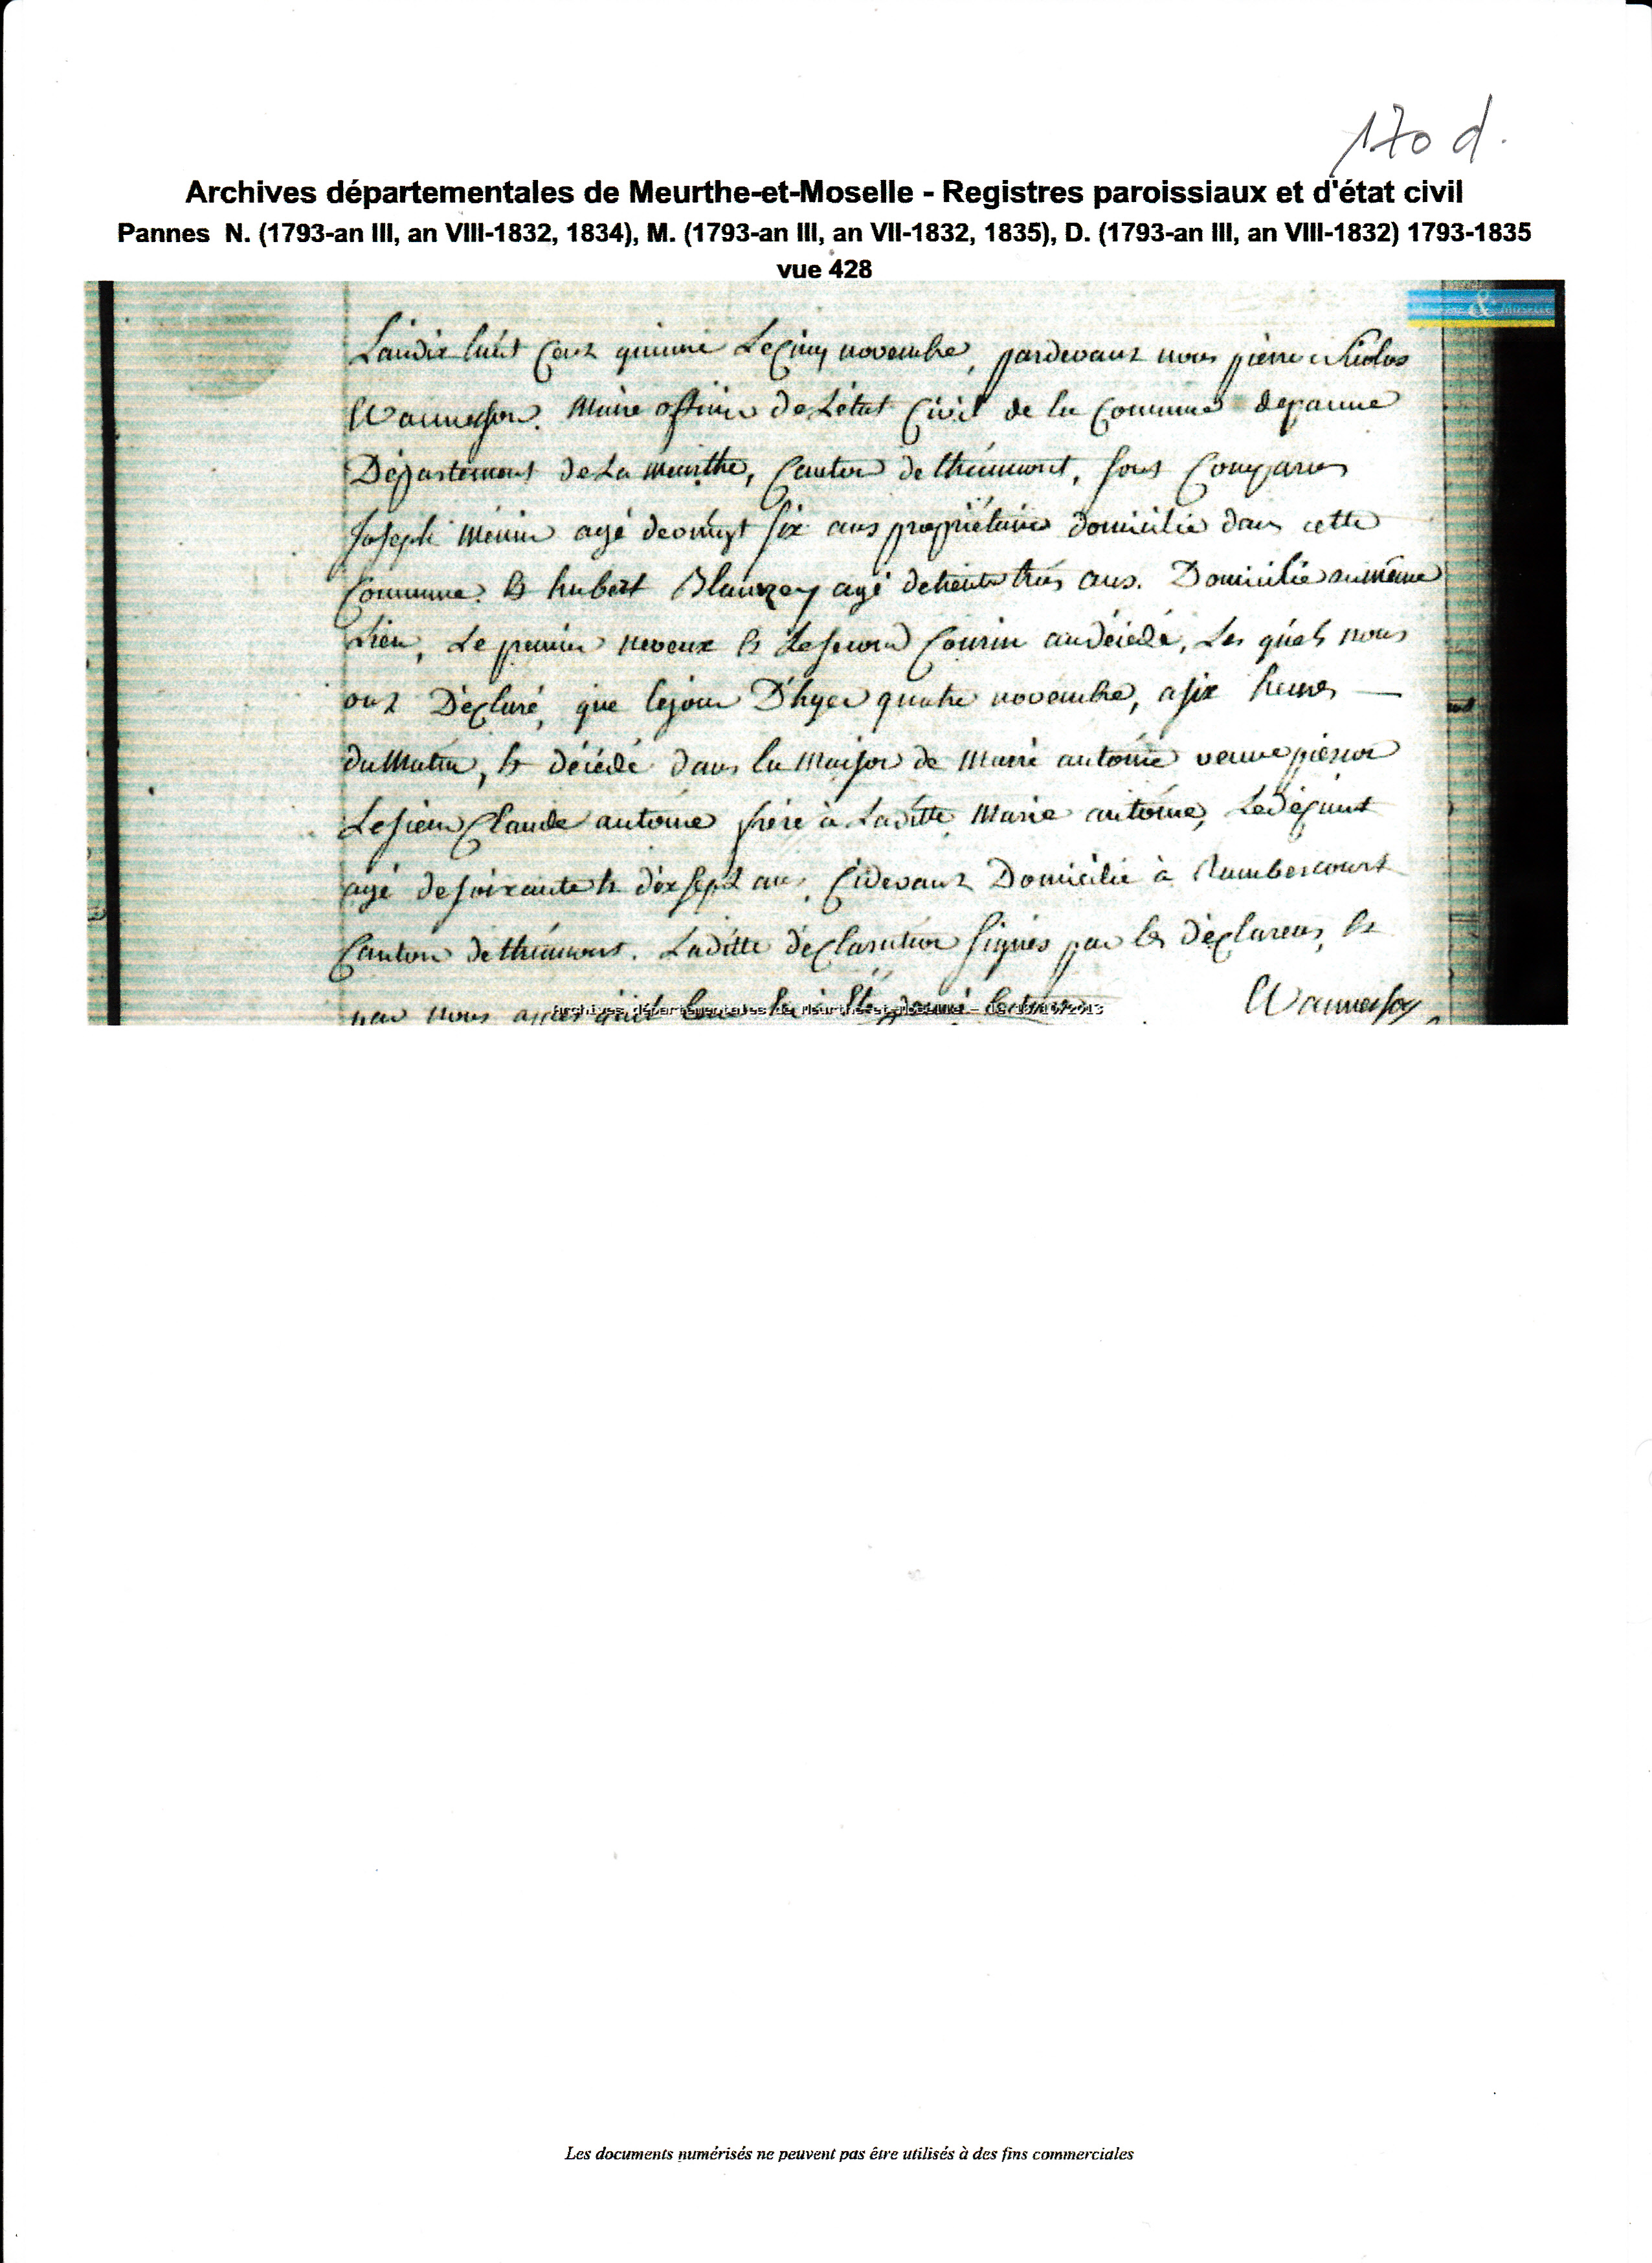 170 d.
Archives départementales de Meurthe-et-Moselle - Registres paroissiaux et d'état civil
Pannes N. (1793-an III, an VIII-1832, 1834), M. (1793-an III, an VII-1832, 1835), D. (1793-an III, an VIII-1832) 1793-1835
vue 428
L'andix huit cent quinze Le cinq novembre, pardevant nous pierre Nicolas
Wannesson. Maire officier de L'état Civil de la Commune depanne
Département de La meurthe, Canton de thiaucourt, sont Comparus
Joseph agé de six ans propriétaire domicilié dans cette
Commune. et hubert Blanzey agé detrente trois ans. Domicilié au même
Lieu, Le premier neveux et Le second Cousin au décédé, Les quels nous
ont Déclaré, que lejour D'hyer quatre novembre, a six heures
du Matin, est décédé dans la Maison de Marie antoine veuve pierson
Le sieur Claude antoine frère à Laditte Marie antoine, Ledéfunt
agé de soixante et dix sept ans, Cidevant Domicilié à Rambercourt
Canton de thiaucourt. Laditte déclaration signés par les déclarens, et
par nous après qu'il leur en à été donné lecture Wannesson
Archives départementales de Meurthe-et-Moselle - le 16/10/2013
Les documents numérisés ne peuvent pas être utilisés à des fins commerciales